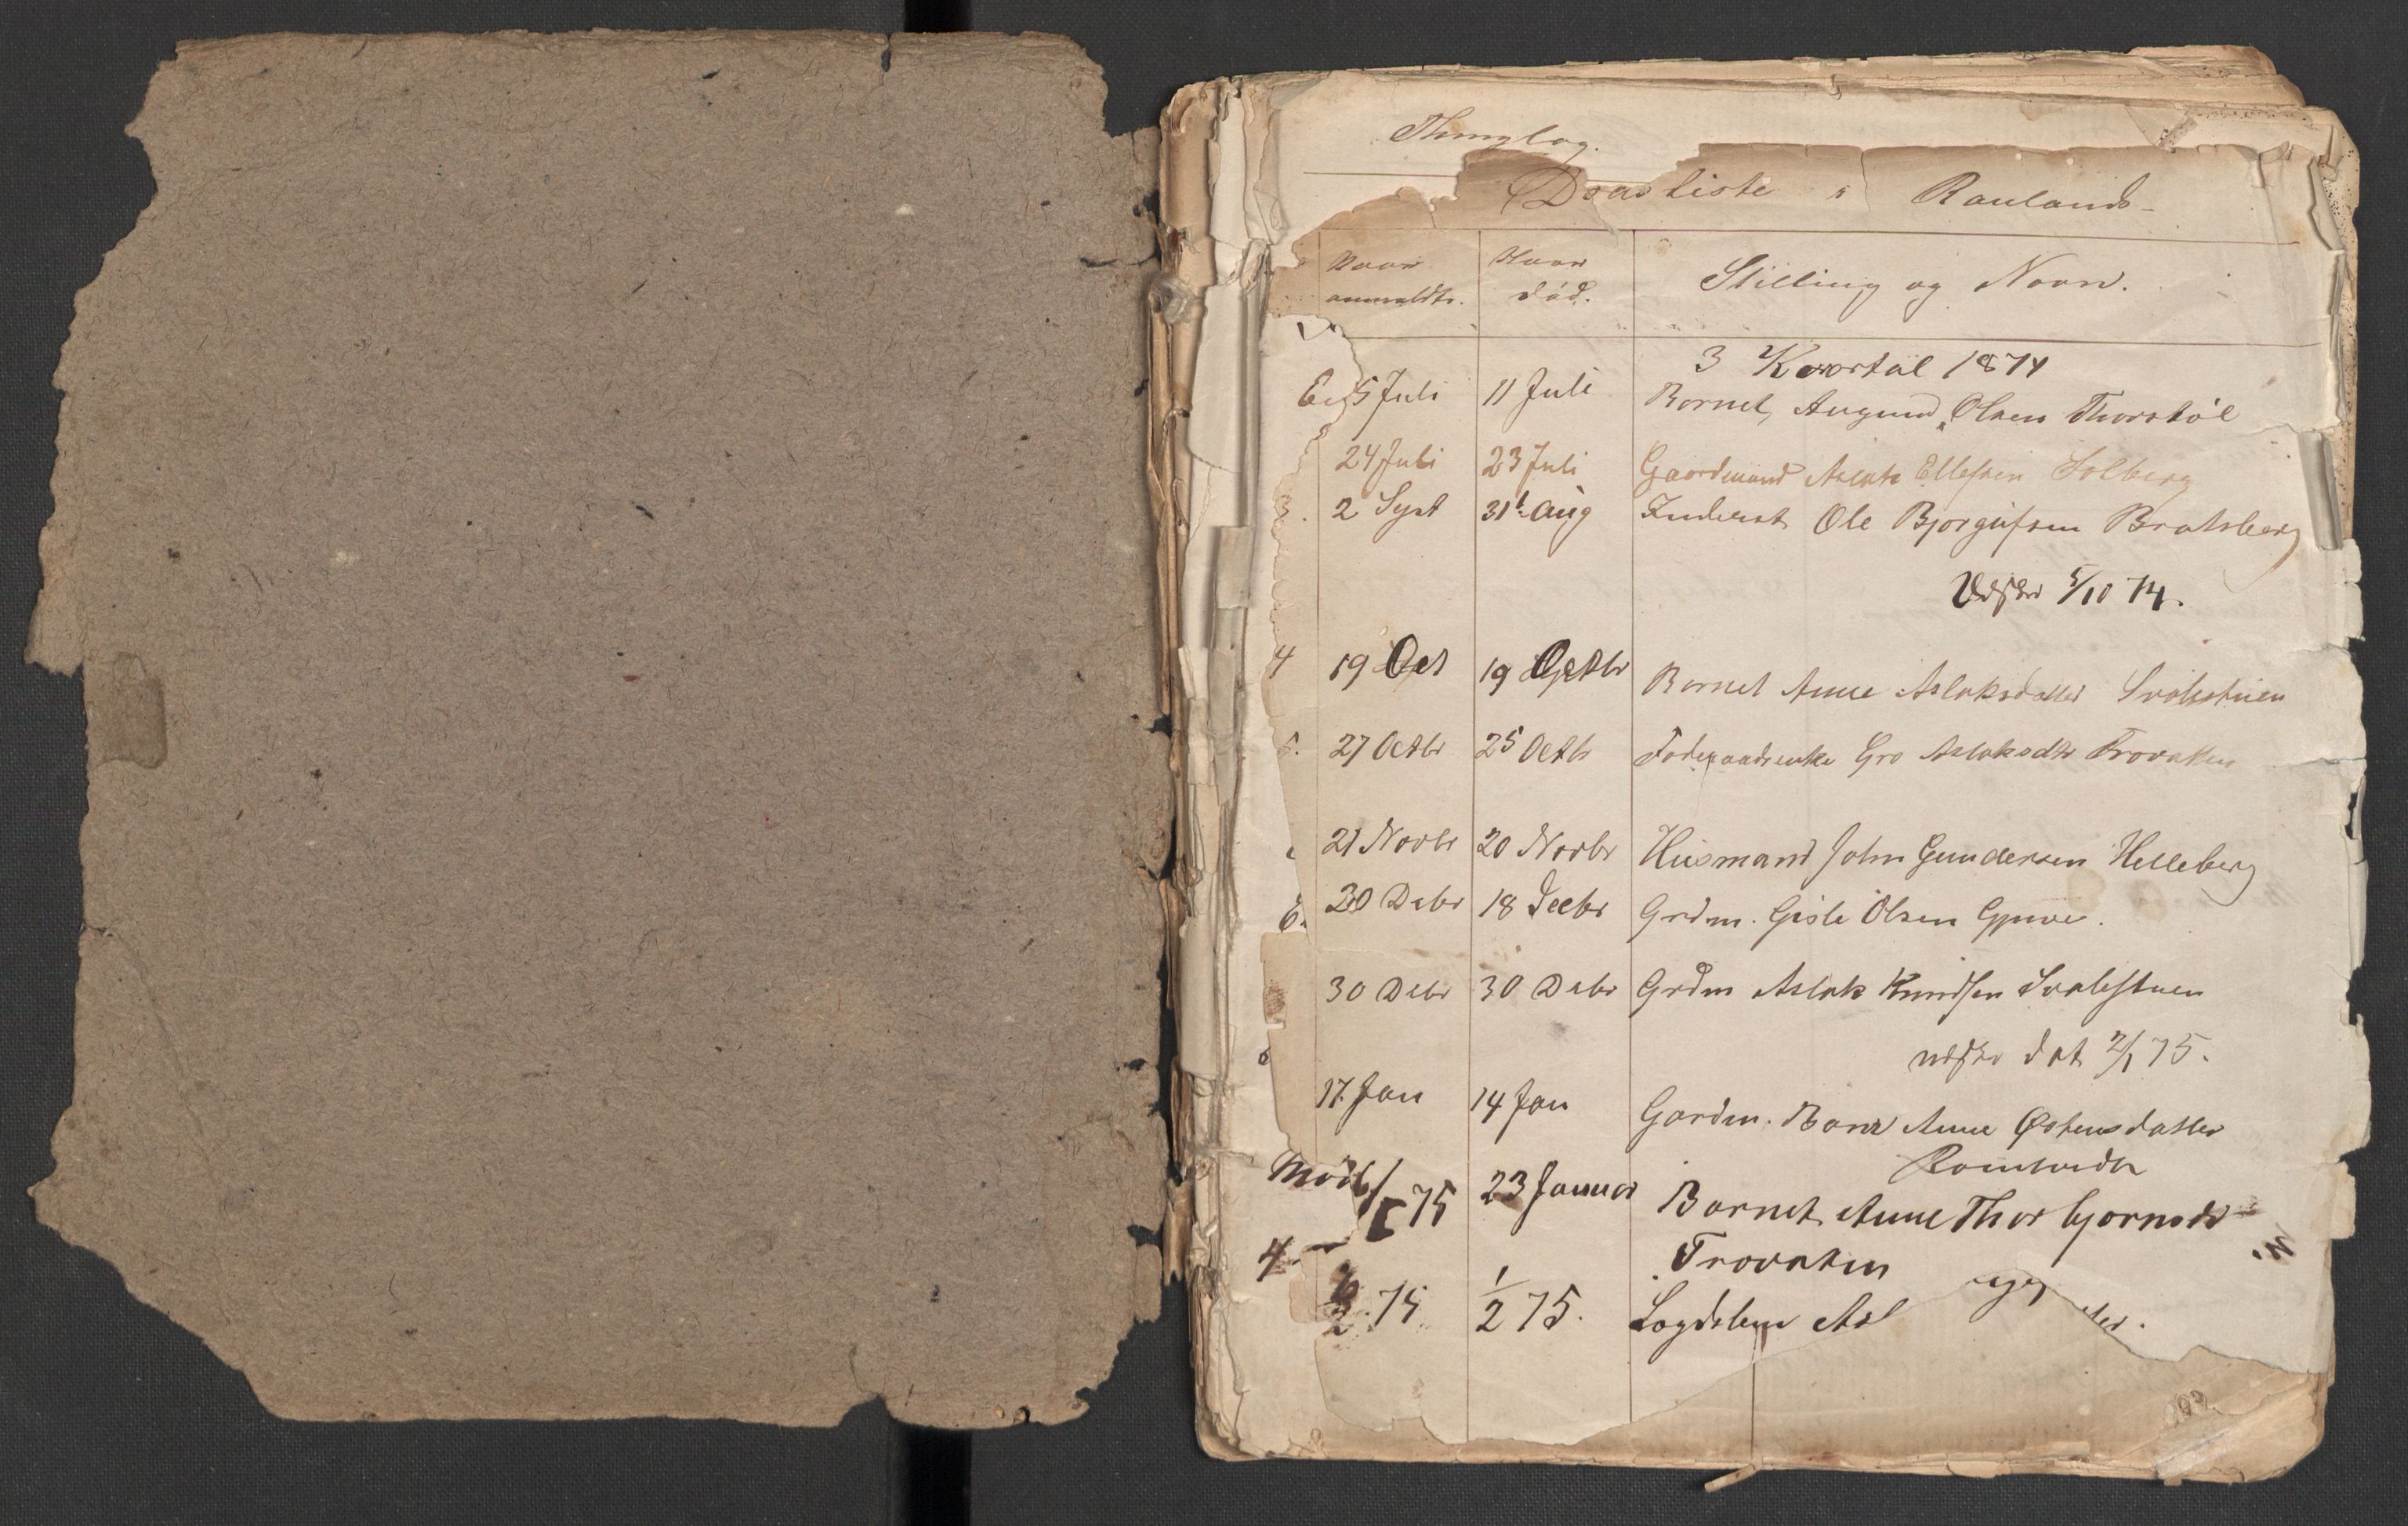 Thinglag.
Døds Liste i Raulands
Naar anmeldt. Naar død. Stilling og Navn.
3 Kvartal 1874
5 Juli 11 Juli Barnet, Augund Olsen Thorstöl
24 Juli 23 Juli Gaardmand Aslak Ellefsen Solberg
3. 2 Sept 31t Aug Inderst Ole Bjørgufsen Bratsberg
Udskr 5/10 74.
4 19 Oct 19 Octbr Barnet Anne Aslaksdatter Svalestuen
5. 27 Octbr 25 Octbr Foderaadsenke Gro Aslaksdtr Trovatten
21 Novbr 20 Novbr Husmand John Gundersen Helleberg
30 Debr 18 Decbr Grdm. Gisle Olsen Gjuve.
30 Debr 30 Debr Grdm Aslak Knudsen Svalestuen
udskr dat 2/1 75.
17. Jan 14 Jan Gardm. Barn Anne Østensdatter
75 23 Januar Barnet Anne Thorbjornsdr
4 Trovatten
2 75 1/2 75. Logdslem Asl